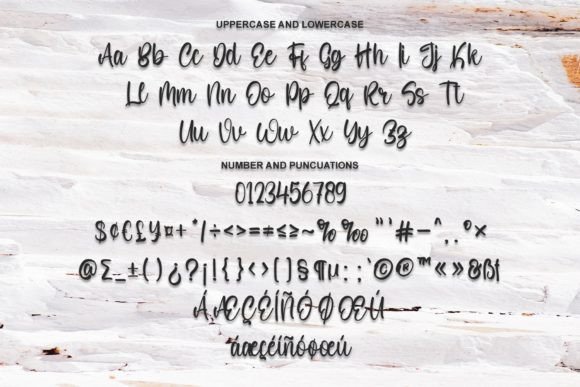 UPPERCASE AND LOWERCASE
Aa Bb Cc Dd Ee Ff Gg Hh Ii Jj Kk
Ll Mm Nn Oo Pp Qq Rr Ss Tt
Uu Vv Ww Xx Yy Zz
NUMBER AND PUNCUATIONS
0123456789
$¢€£¥¤+*/÷<>=≠≤≥~%‰"'#—^,.°×
@Σ_±()¿?¡!{}<>[]§¶µ:;`©®™«»&ßf
ÁÆÇÉÍÑÓØŒÚ
áæçéíñóøœú